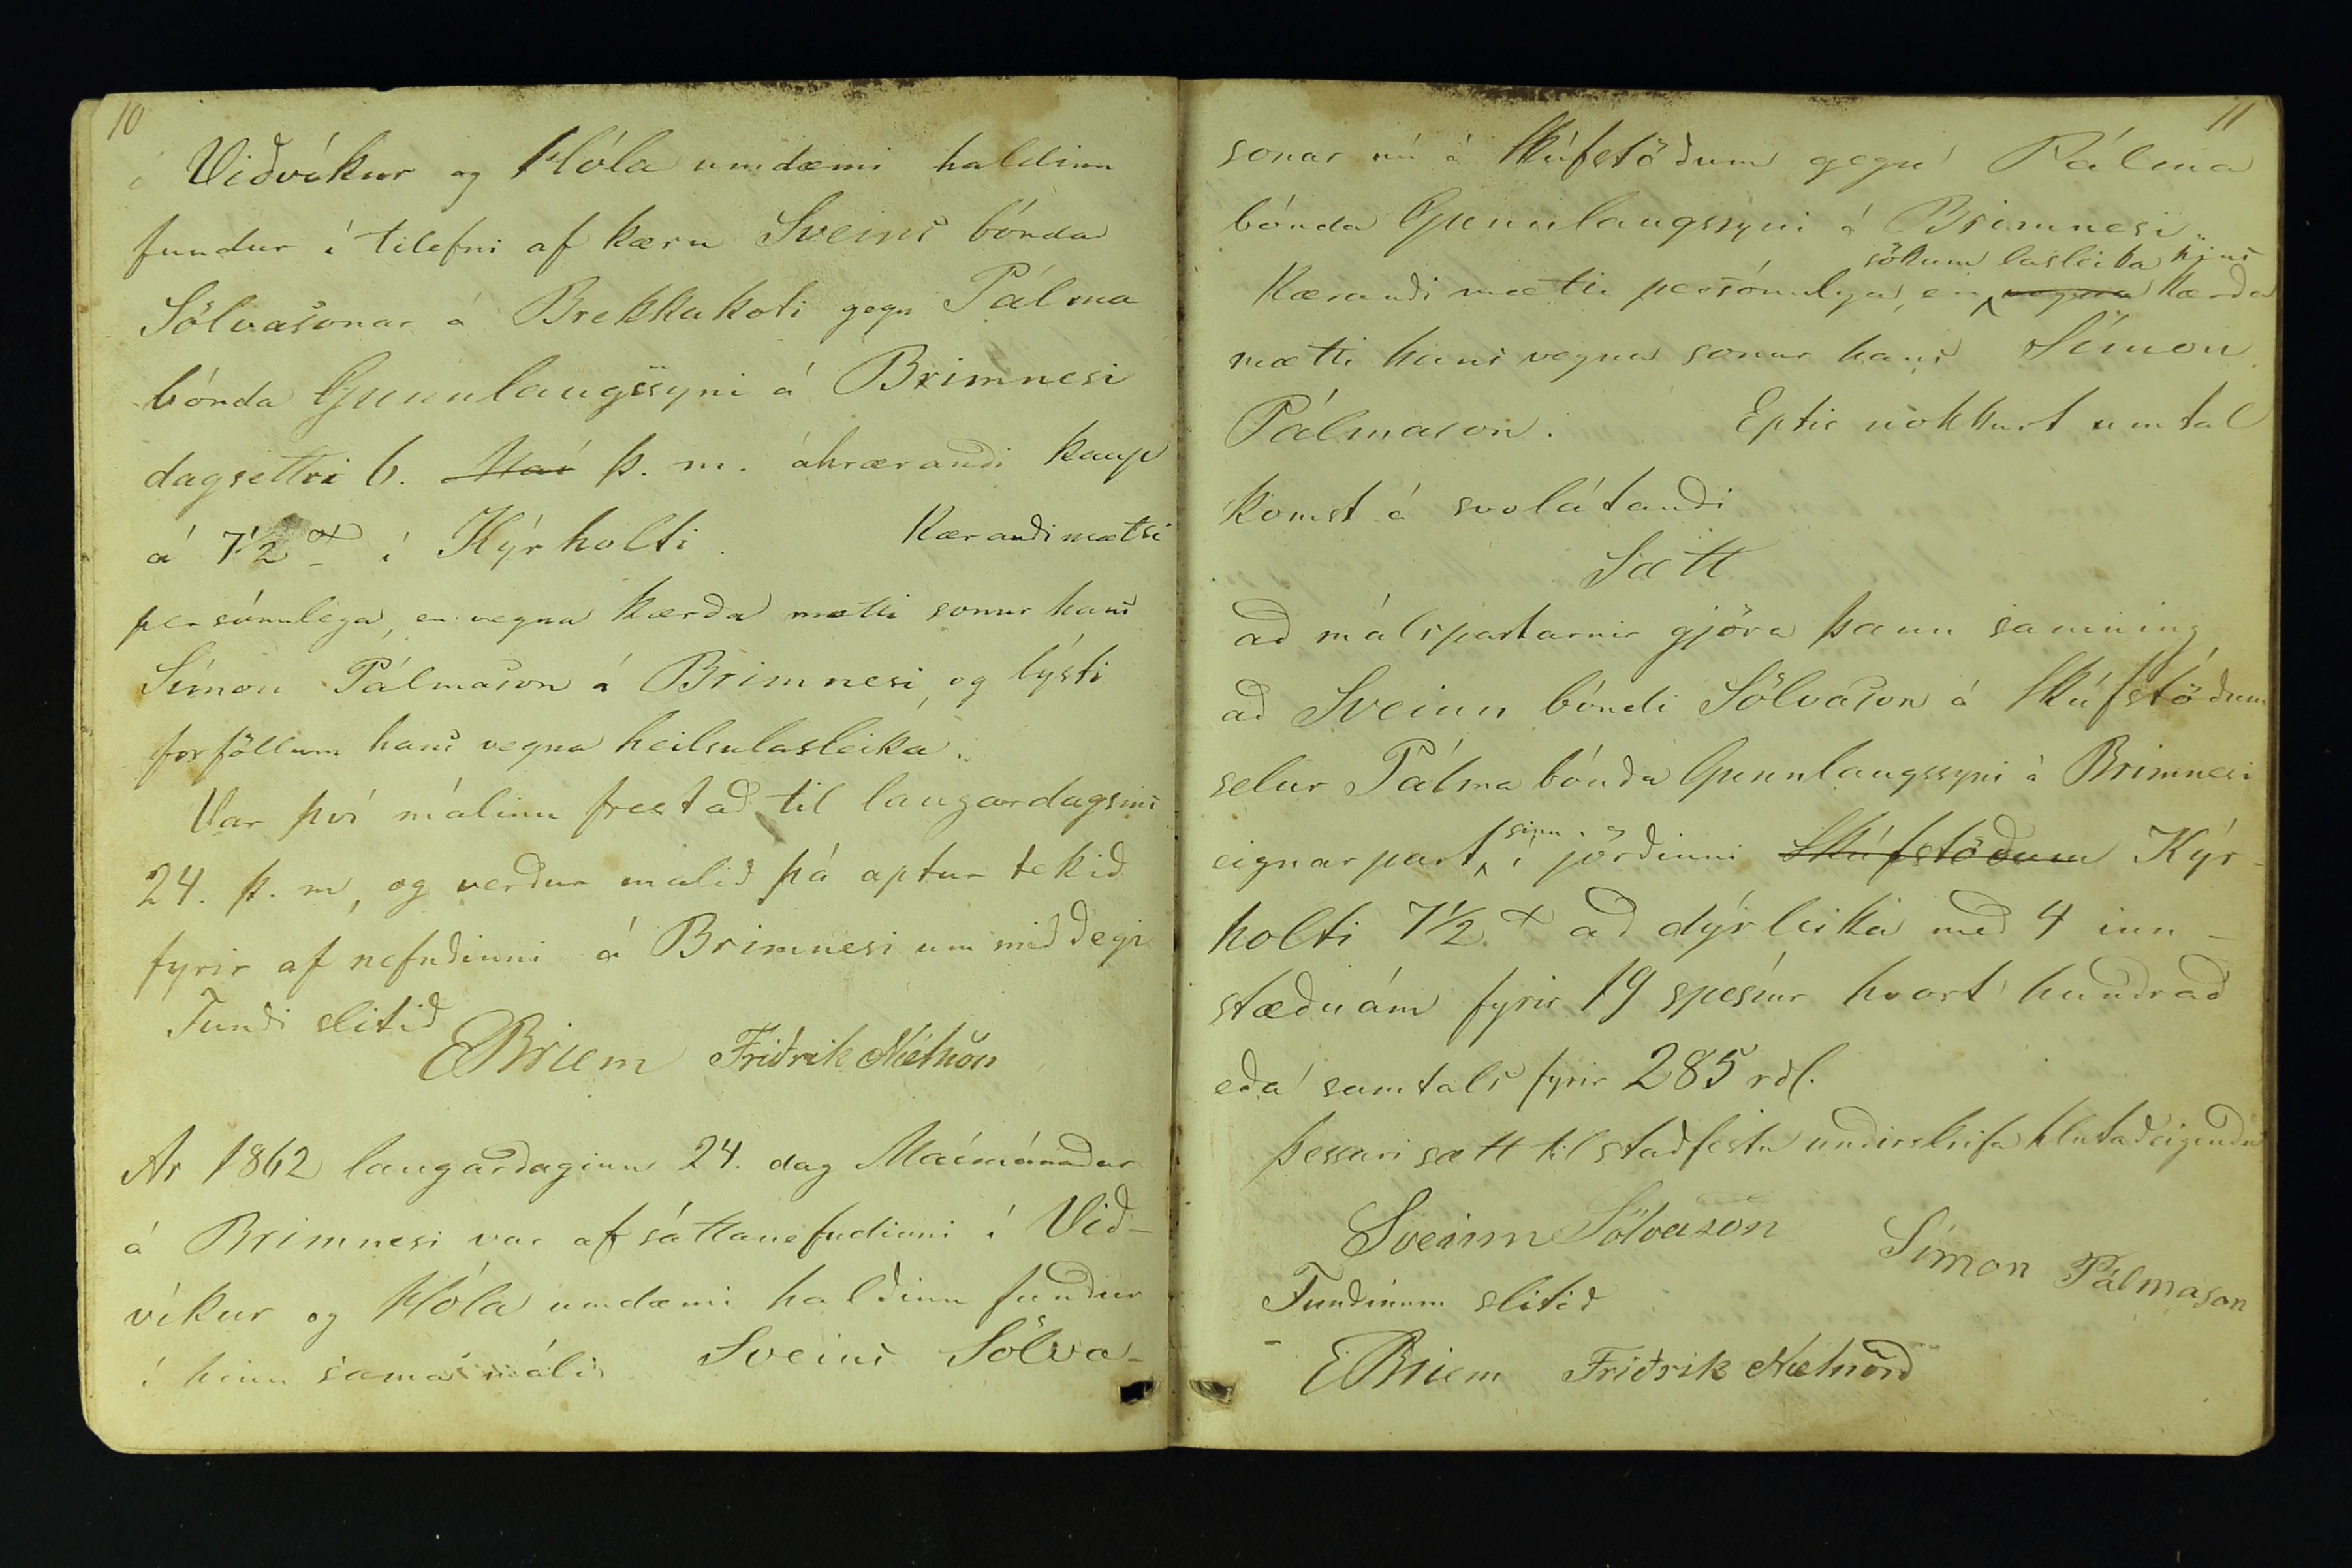 10
í Viðvíkur og Hóla umdæmi haldinn
fundur í tilefni af kæru Sveins bónda
Sölvasonar á Brekkukoti gegn Pálma
bónda Gunnlaugssyni á Brimnesi
dagsettri 6. Maí þ. m. áhrærandi kaup
á 7½ í Kýrholti. Kærandi mætti
persónulega, en vegna kærða mætti sonur hans
Símon Pálmason á Brimnesi, og lýsti
forföllum hans vegna heilsulasleika.
Var því málinu frestað til laugardagsins
24. þ. m, og verður málið þá aptur tekið
fyrir af nefndinni á Brimnesi um miðdegi
Fundi slitið
EBriem Friðrik Níelsson
Ár 1862 laugardaginn 24. dag Maímánaðar
á Brimnesi var af sáttanefndinni í Við-
víkur og Hóla umdæmi haldinn fundur
í hinu sama máli Sveins Sölva-
11
sonar nú á Skúfstöðum gegn Pálma
bónda Gunnlaugssyni á Brimnesi.
sökum lasleika hins
Kærandi mætti persónulega, en vegna kærða
mætti hans vegna sonur hans Símon
Pálmason. Eptir nokkurt umtal
komst á svolátandi
Sætt
að málspartarnir gjöra þann samning,
að Sveinn bóndi Sölvason á Skúfstöðum
selur Pálma bónda Gunnlaugssyni á Brimnesi
eignarpart sinn í jörðinni Skúfstöðum Kýr-
holti 7½ að dýrleika með 4 inn-
stæðuám fyrir 19 spesíur hvort hundrað
eða samtals fyrir 285 rdl.
Þessari sætt til staðfestu undirskrifa hlutaðeigendur
Sveinn Sölvason Símon Pálmason
Fundinum slitið
EBriem Friðrik Níelsson